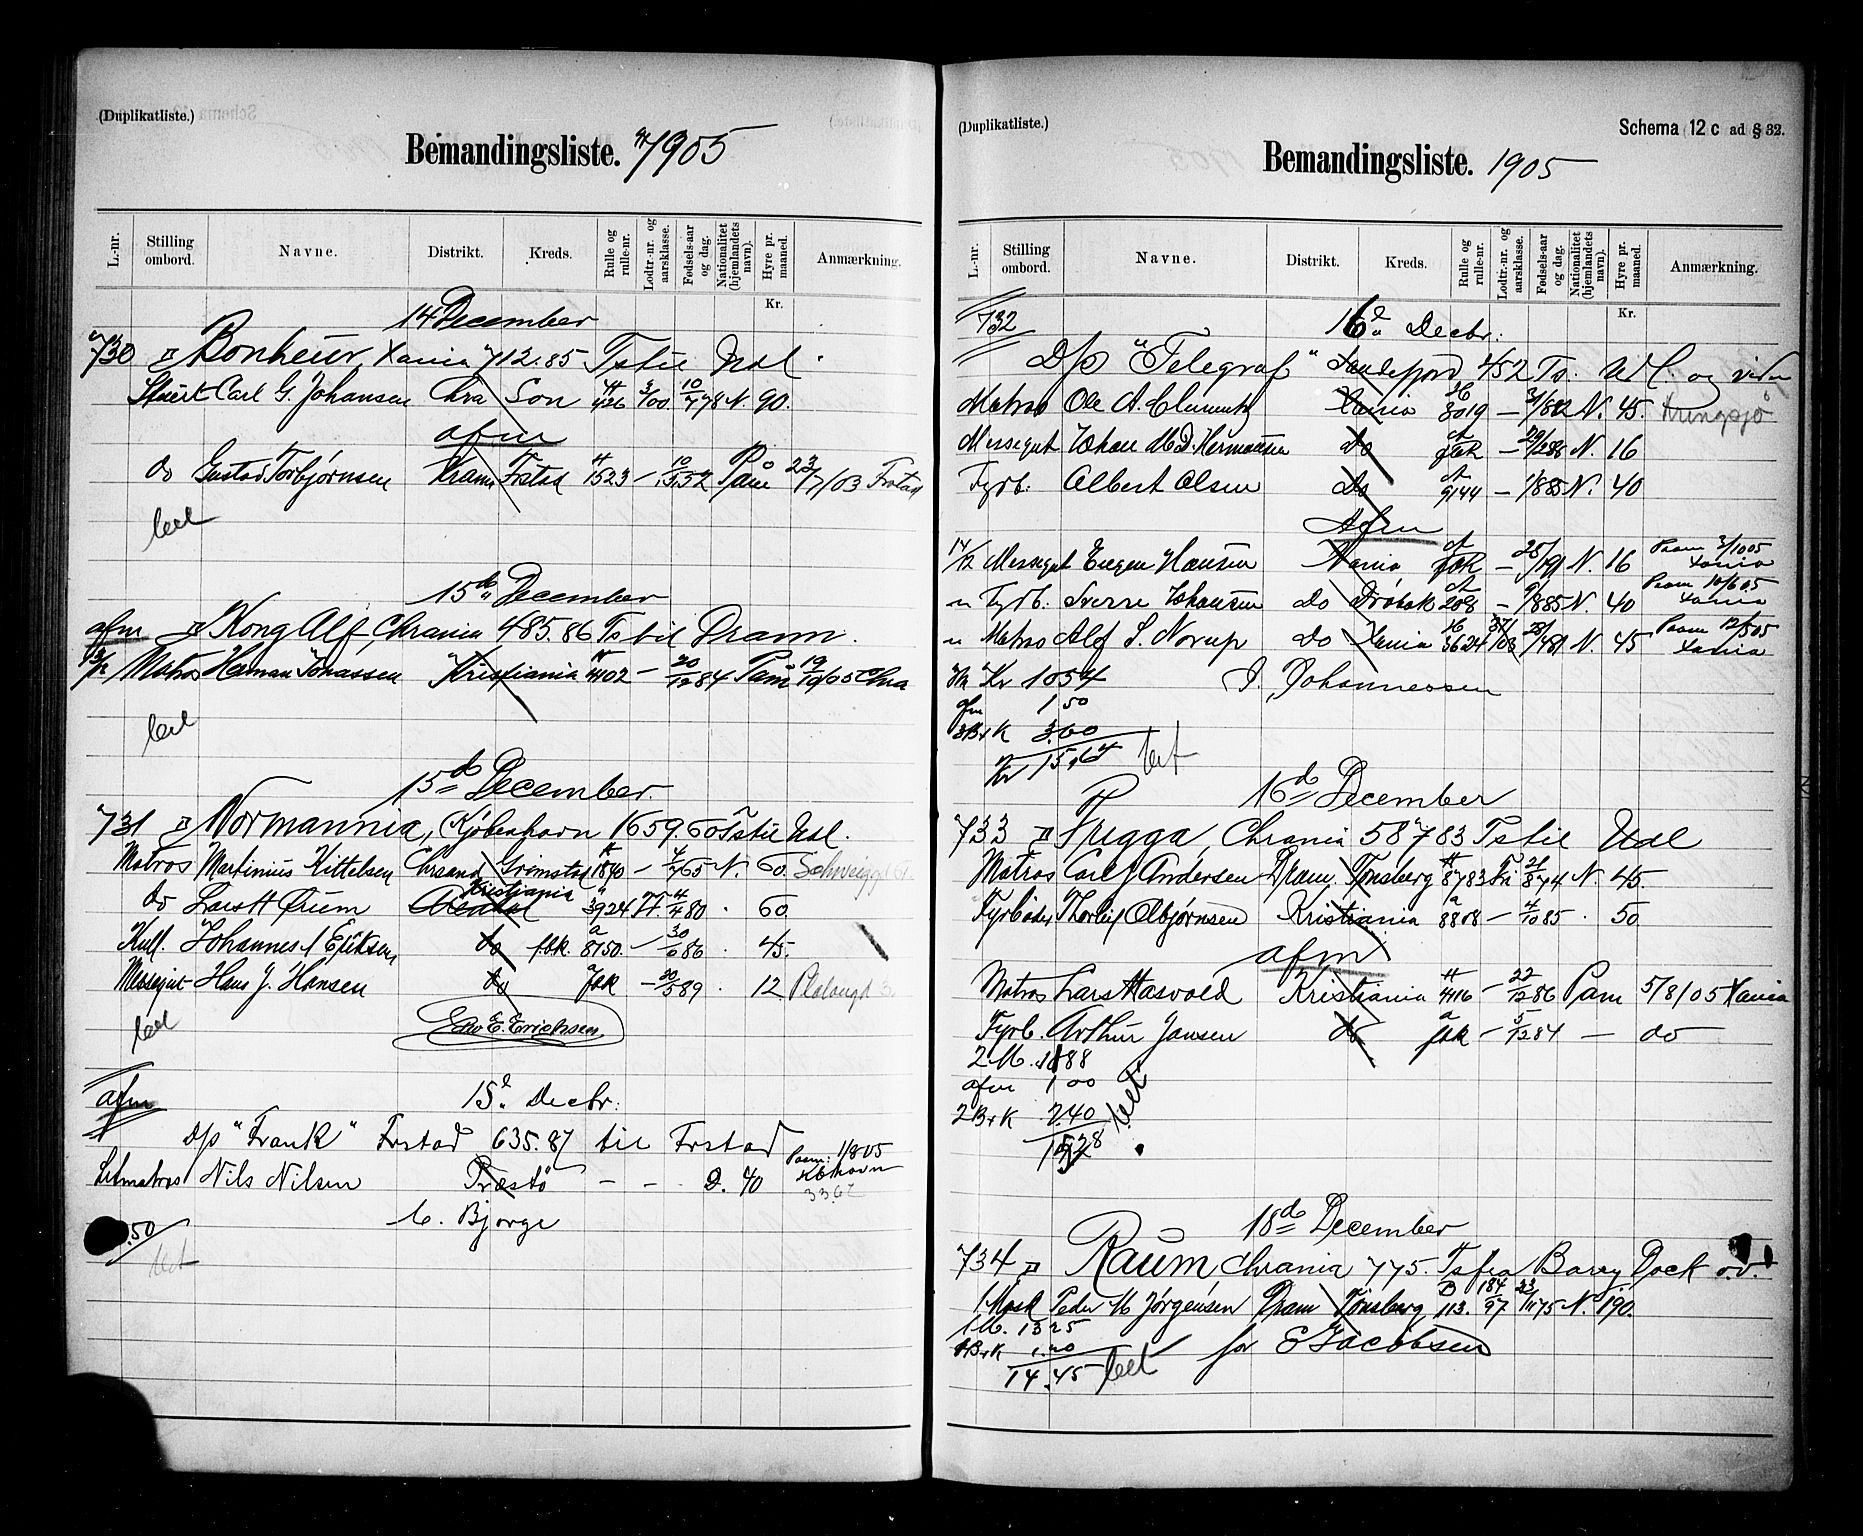 (Duplikatliste.)
Bemandingsliste. 1905
L.-nr. Stilling ombord. Navne. Distrikt. Kreds. Rulle og rulle-nr. Lodtr.-nr. og aarsklasse. Fødsels-aar og dag. Nationalitet (hjemlandets navn). Hyre pr. maaned. Anmærkning.
Kr.
14 December
730 Bonheur, Xania 712.85 Ts til Udl.
Stuert Carl G. Johansen Chra Son 426 3/00 10/7 78 N. 90.
afm
do Gustav Torbjørnsen Krania Frstad 1523 — 10/3.52 Påm 23/7/03 Frstad
led
15de December
afm Kong Alf, Chrania 485.86 Ts til Dramm.
Matros Herman Johassen Kristiania 4402 — 20/12 84 Påm 19/10/05 Chra
led
15de December.
731 Normannia, Kjøbenhavn 1659.60 Ts til Udl.
Matros Martinius Kittelsen Chrsand Grimstad 1890 — 4/7 65 N. 60.
do Lars H Ørum Arendal Kristiania 3924 11/4 80 . 60
Kull. Johannes Eriksen do fok. 8750. — 30/6 86 . 45.
Messegut Hans J. Hansen do fok — 20/5 89 . 12
led E. Ericksen.
afm
15d Decbr:
D/s "Frank" Frstad 635.87 til Frstad
Letmatros Nils Nilsen Præstø — — D. 40 Paam: 1/8 05 Kbhavn
C. Bjorge
.50
led
(Duplikatliste.)
Schema 12 c ad § 32.
Bemandingsliste. 1905
L.-nr. Stilling ombord. Navne. Distrikt. Kreds. Rulle og rulle-nr. Lodtr.-nr. og aarsklasse. Fødsels-aar og dag. Nationalitet (hjemlandets navn). Hyre pr. maaned. Anmærkning.
Kr.
732 16d Decbr:
D/s "Telegraf" Sandefjord 452 Ts. Udl. og videre
Matros Ole A. Clementz Xania 8019 — N. 45. Kringsjå
Messegut Johan M. D. Hermansen do fok — N. 16
Fyrb. Albert Olsen Do 9144 — 1/8 85 N. 40
Afm
14/12 Messegut Eugen Hansen Xania fok — 25/1 91 N. 16 Paam 3/10 05 Xania
" Fyrb. Sverre Johansen do Drøbak 208 — 9/8 85 N. 40 Paam 10/6 05 Xania
" Matros Alf S. Norup do Xania 3624 N. 45 Paam 12/5 05 Xania
Kr 10.54 J. Johannessen
afm 1.50
3 B+K 3.60
Kr 15.64 led
16de December
733 Frigga, Chrania 58783 Ts til Udl
Matros Carl J Andersen Dram. Tønsberg 8783 Fri 21/8 74 N. 45.
Fyrbøder Thorleif Olbjørnsen Kristiania 8808 — 4/10 85 . 50.
afm
Matros Lars Hasvold Kristiania 4416 — 22/12 86 Pam 5/8/05 Xania
Fyrb. Arthur Jansen do fok — 5/12 84 — do
2 M. 1188
afm 1 00
2 B+K 2.40
15.28 led
18de December
734 Raum Chrania 775. Ts fra Barry Dock o.v.
1 Mask Peder M Jørgensen Dram Tønsberg 113. 184/97 23/11 75 N. 190.
1 M. 13 25
1 B+K 1.20 for E Jacobsen
14.45 led